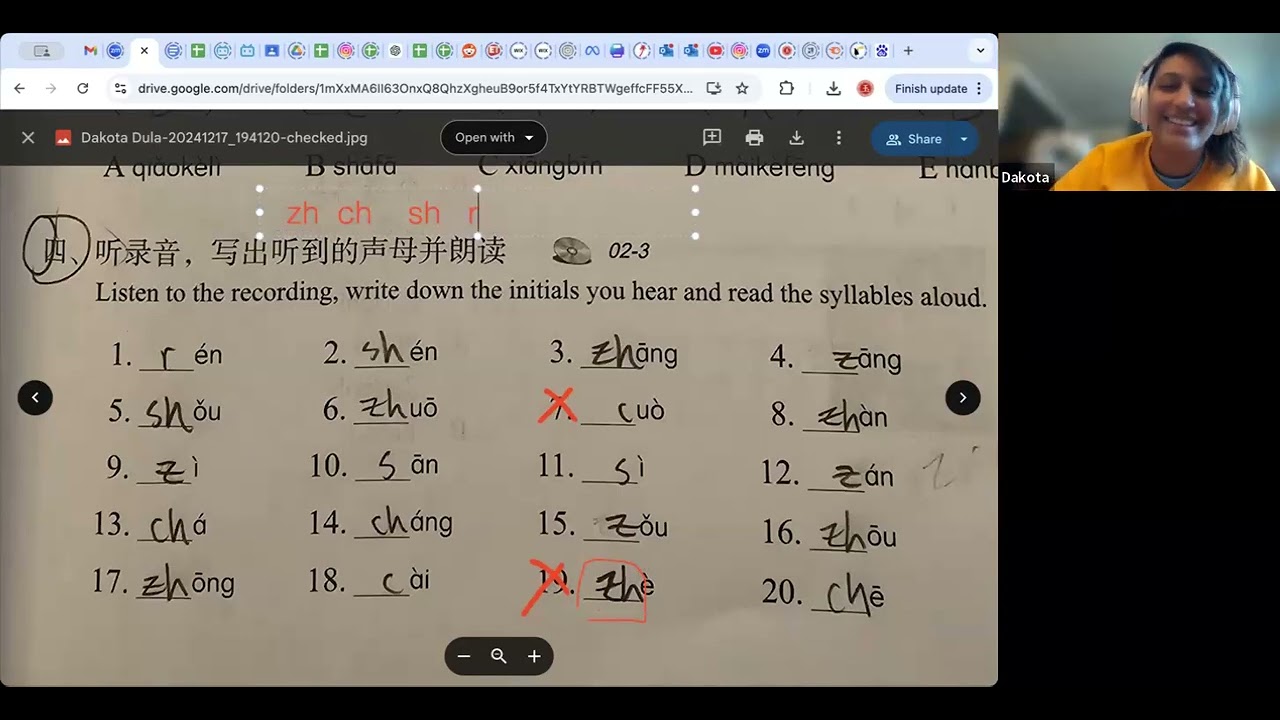 Finish update
drive.google.com/drive/folders/1mXxMA6Il63OnxQ8QhzXgheuB9or5f4TxYtYRBTWgeffcFF55X...
Dakota Dula-20241217_194120-checked.jpg
Open with
Share
A qiǎokèlì B shāfā C xiāngbīn D màikèfēng E hànb
Dakota
zh ch sh r
四、听录音，写出听到的声母并朗读 02-3
Listen to the recording, write down the initials you hear and read the syllables aloud.
1. r én 2. sh én 3. zh āng 4. z āng
5. sh ǒu 6. zh uō 7. c uò 8. zh àn
9. z ì 10. s ān 11. s ì 12. z án
13. ch á 14. ch áng 15. z ǒu 16. zh ōu
17. zh ōng 18. c ài 19. zh è 20. ch ē